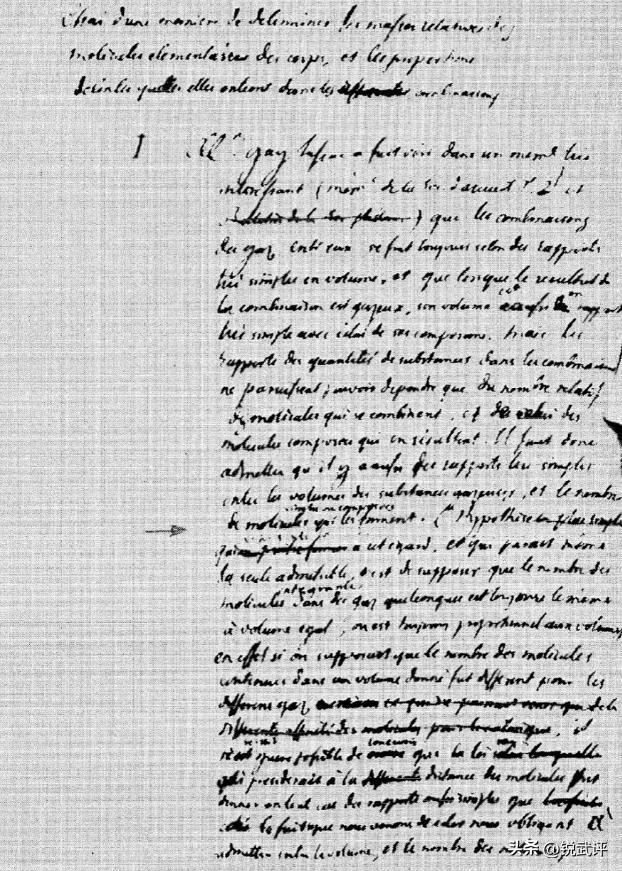 Essai d'une maniere de determiner les masses relatives des
molécules elementaires des corps, et les proportions
selon les quelles elles entrent dans les combinaisons
I Mr. gay Lussac a fait voir dans un mem. très
interessant (mém. de la Soc. d'arcueil T. 2) et
) que les combinaisons
des gaz entr'eux se font toujours selon des rapports
très simples en volume, et que lorsque le resultat de
la combinaison est gazeux, son volume est en rapport
très simple avec celui de ses composans. mais les
rapports des quantités de substances dans les combinaisons
ne paroissent pouvoir dependre que du nombre relatif
des molécules qui se combinent, et de celui des
molécules composées qui en résultent. Il faut donc
admettre qu'il y a aussi des rapports très simples
entre les volumes des substances gazeuses, et le nombre
simples ou composées
de molécules qui les forment. L'hypothèse
à cet égard, et qui parait même
la seule admissible, est de supposer que le nombre des
integrantes
molécules dans des gaz quelconques est toujours le même
à volume egal, ou est toujours proportionnel aux volumes
en effet si on supposoit que le nombre des molécules
contenues dans un volume donné fut different pour les
differens gaz
il
possible de concevoir que la loi
qui presideroit à la distance des molécules put
donner en tout cas des rapports aussi simples que
les faits que nous venons de citer nous obligent à
admettre entre le volume, et le nombre des
头条 @锐武评